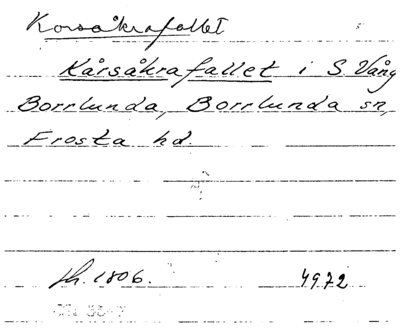 Korsåkrafallet
Kårsåkrafallet i S. Vång
Borrlunda, Borrlunda sn,
Frosta hd.
1806. 4972